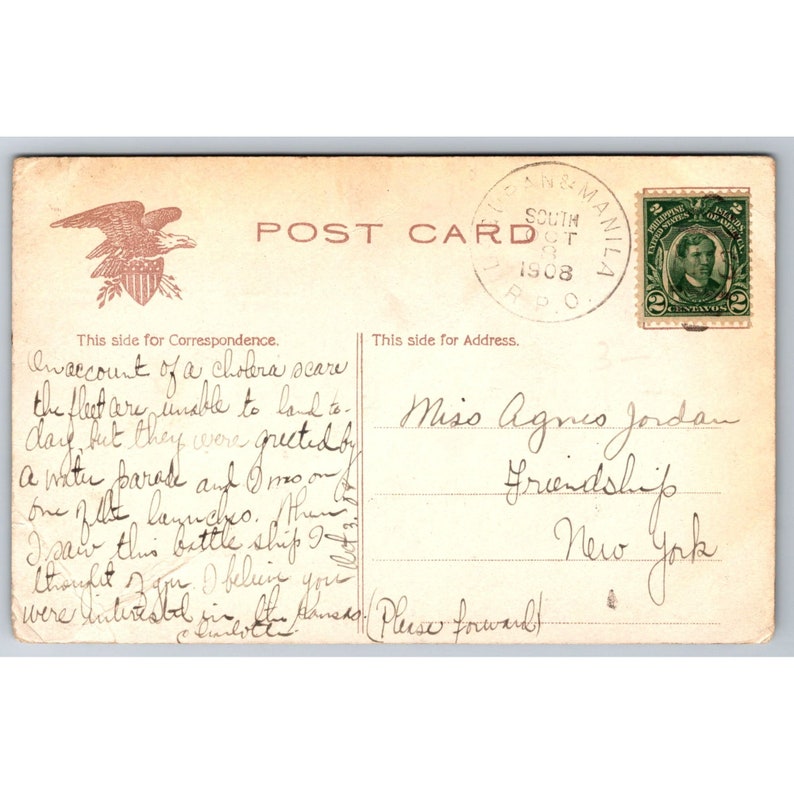 POST CARD
DAGUPAN & MANILA
SOUTH
OCT
3
1908
R.P.O.
2 2
PHILIPPINE ISLANDS
UNITED STATES OF AMERICA
2 2
CENTAVOS
This side for Correspondence.
On account of a cholera scare
the fleet are unable to land to-
day, but they were greeted by
a water parade and I was on
one of the launches. When
I saw this battle ship I
thought of you. I believe you
were interested in the Kansas.
Charlotte
Oct 3, 08
This side for Address.
3-
Miss Agnes Jordan
Friendship
New York
(Please forward)